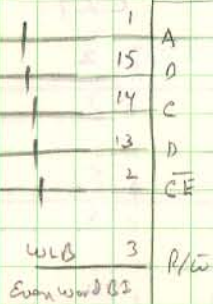 1 A
15 D
14 C
13 D
2 C̅E̅
WLB 3 R/W̅
Even Word BI